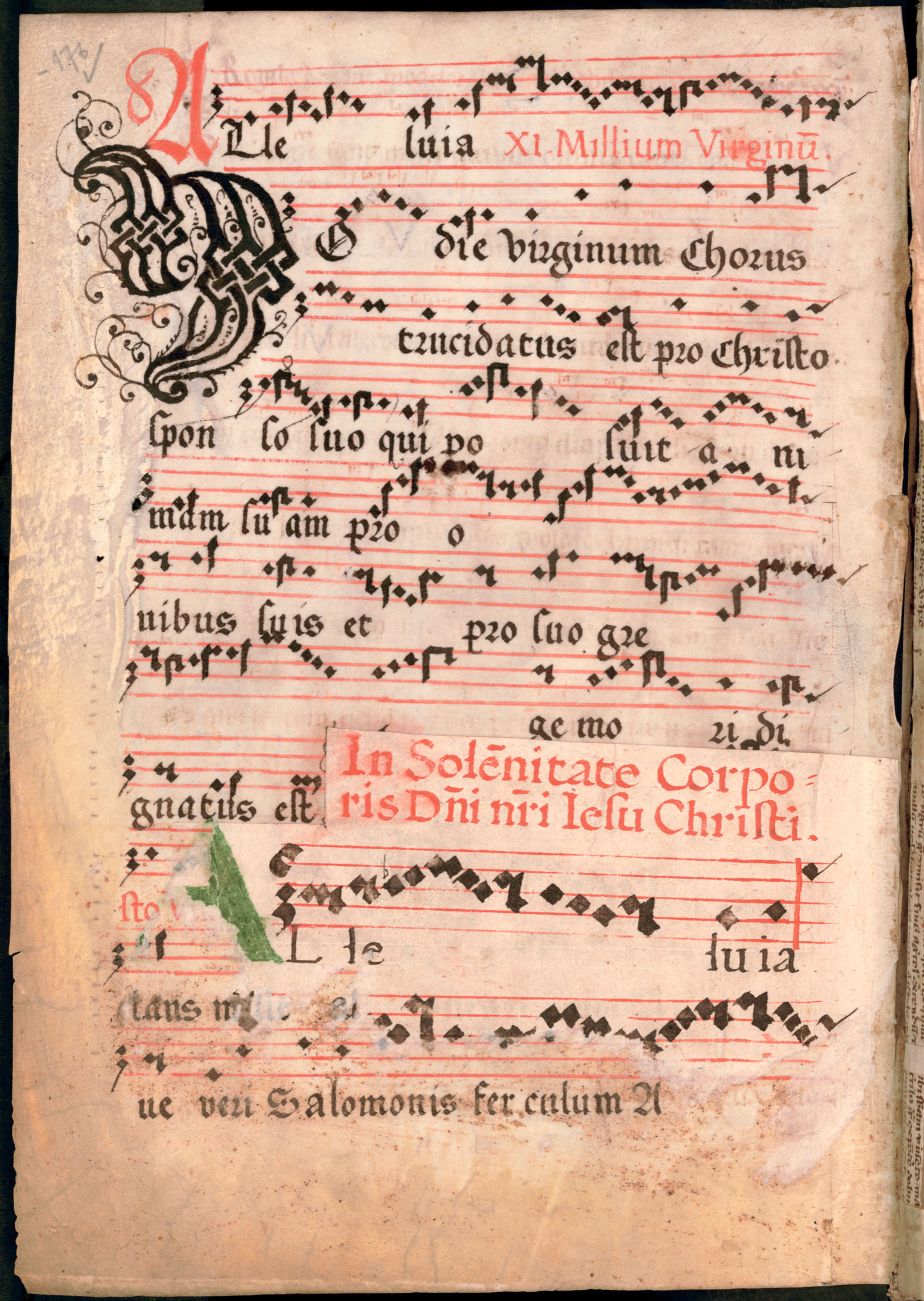 -176
8 A
Lle luia XI Millium Virginū.
HOdie virginum Chorus
trucidatus est pro Christo
spon so suo qui po suit a ni
mam su am pro o
nibus suis et pro suo gre
ge mo ri di
gnatus est
In Solēnitate Corpo=
ris Dñi nr̄i Iesu Christi.
sto
A L le luia
tans
ue veri Salomonis fer culum A